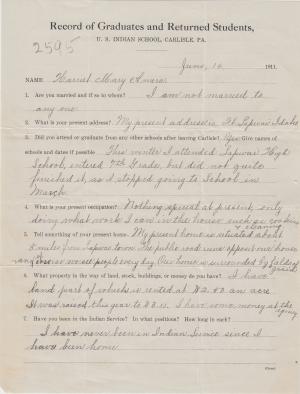 Record of Graduates and Returned Students,
U. S. INDIAN SCHOOL, CARLISLE, PA.
2595
June, 16 1911.
NAME Harriet Mary
1. Are you married and if so to whom? I am not married to
any one.
2. What is your present address? My present address is Ft. Lapwai Idaho
3. Did you attend or graduate from any other schools after leaving Carlisle? Yes Give names of
schools and dates if possible This winter I attended Lapwai High
School, entered 7th Grade, but did not quite
finished it, as I stopped going to School in
March.
4. What is your present occupation? Nothing special at present, only
doing what work I can in the house such as cooking
& cleaning
5. Tell something of your present home. My present home is situated about
miles from Lapwai town. The public road runs opposite our house
and we see most people every day. Our home is surrounded by fields of
grain
6. What property in the way of land, stock, buildings, or money do you have? I have
land part of which is rented at $2.50 an acre.
It was raised this year to I have some money at the
Agency
7. Have you been in the Indian Service? In what positions? How long in each?
I have never been in Indian Service since I
have been home.
(Over)